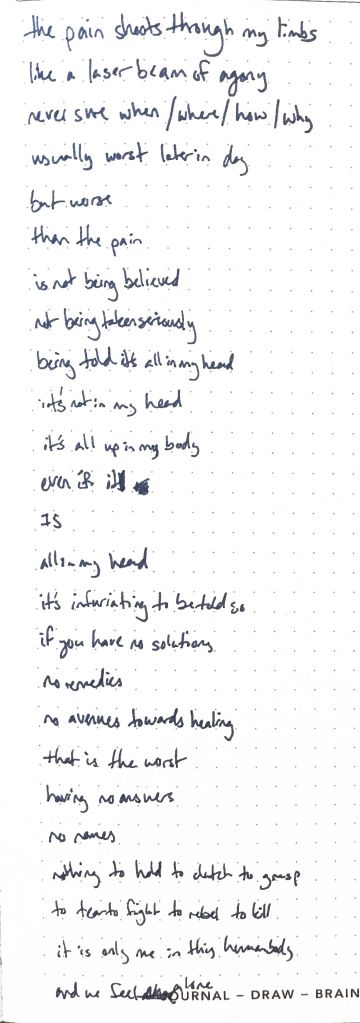 the pain shoots through my limbs
like a laser beam of agony
never sure when/where/how/why
usually worst later in day
but worse
than the pain
is not being believed
not being taken seriously
being told it's all in my head
it's not in my head
it's all up in my body
even if it
IS
all in my head
it's infuriating to be told so
if you have no solutions
no remedies
no avenues towards healing
that is the worst
having no answers
no names
nothing to hold to clutch to grasp
to tear to fight to rebel to kill
it is only me in this human body
and we feel alone
JOURNAL – DRAW – BRAIN